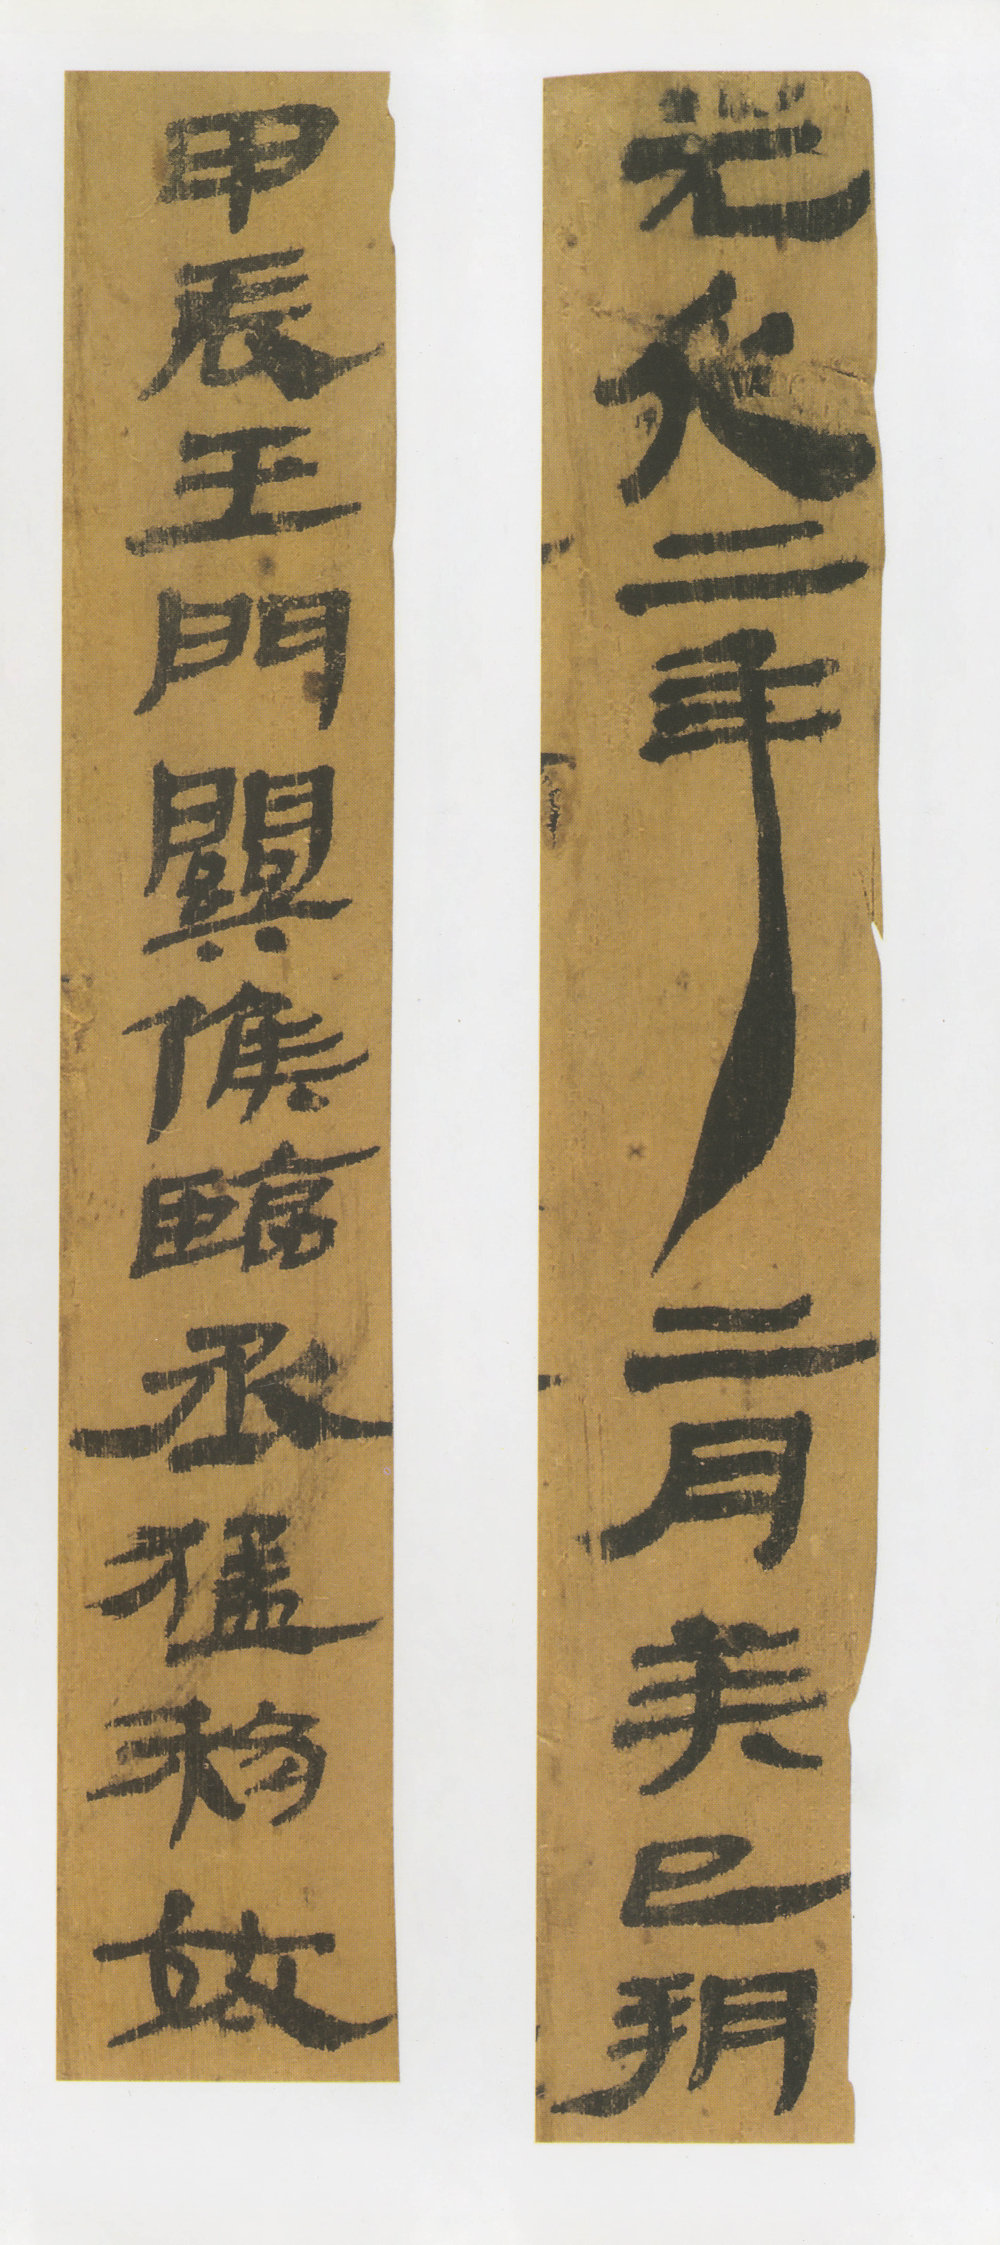 元延二年二月癸巳朔
甲辰玉門關候臨丞猛移效